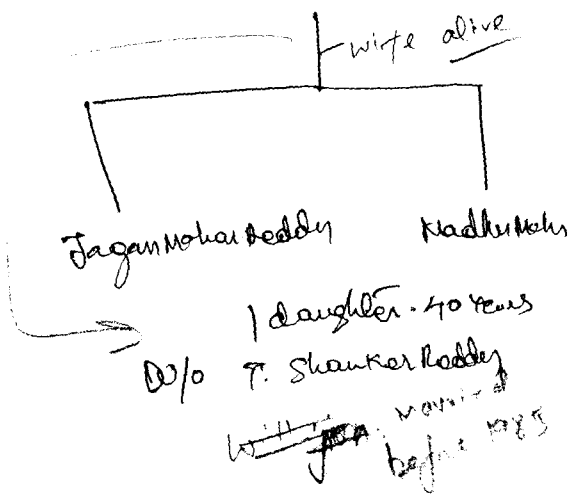 wife alive
Jagan Mohan Reddy Madhu Mohn
1 daughter. 40 Years
D/o T. Shanker Reddy
married
before 1985